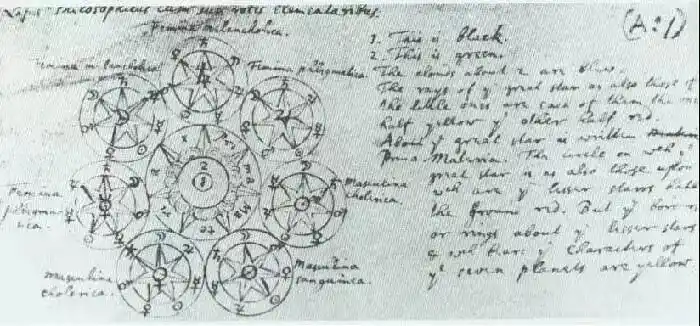 Lapis philosophicus cum suis rotis elementaribus.
(A:1)
Femina melancholica.
Femina melancholica
Femina phlegmatica.
Femina phlegmatica.
Masculina cholerica.
masculina cholerica.
Masculina sanguinea.
1. This is black.
2. This is green.
The clouds about 2 are blew.
The rays of yͤ great star as also those of
the little ones are each of them the one
half yellow yͤ other half red.
About yͤ great star is written
Prima Materia. The circle on wch yͤ
great star is as also those upon
wch are yͤ lesser starrs hath
the ground red. But yͤ borders
or rings about yͤ lesser starrs
& wth there yͤ characters of
yͤ seven planets are yellow